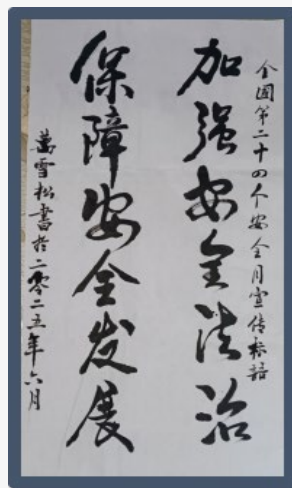 全国第二十四个安全月宣传标语
加强安全法治
保障安全发展
万雪松书于二零二五年六月